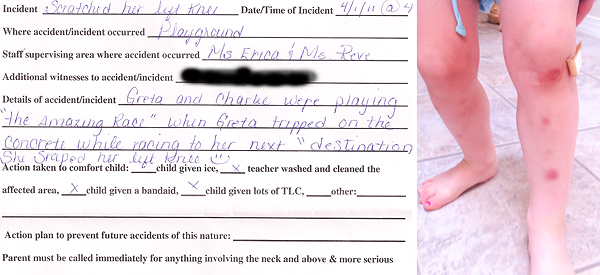 Incident Scratched her left knee Date/Time of Incident 4/1/11 @ 4
Where accident/incident occurred Playground
Staff supervising area where accident occurred Ms Erica & Ms. Reve
Additional witnesses to accident/incident
Details of accident/incident Greta and Charlie were playing
"the Amazing Race" when Greta tripped on the
concrete while racing to her next "destination
She sraped her left knee ☺
Action taken to comfort child: ___child given ice, x teacher washed and cleaned the
affected area, x child given a bandaid, x child given lots of TLC, ___other:
Action plan to prevent future accidents of this nature:
Parent must be called immediately for anything involving the neck and above & more serious